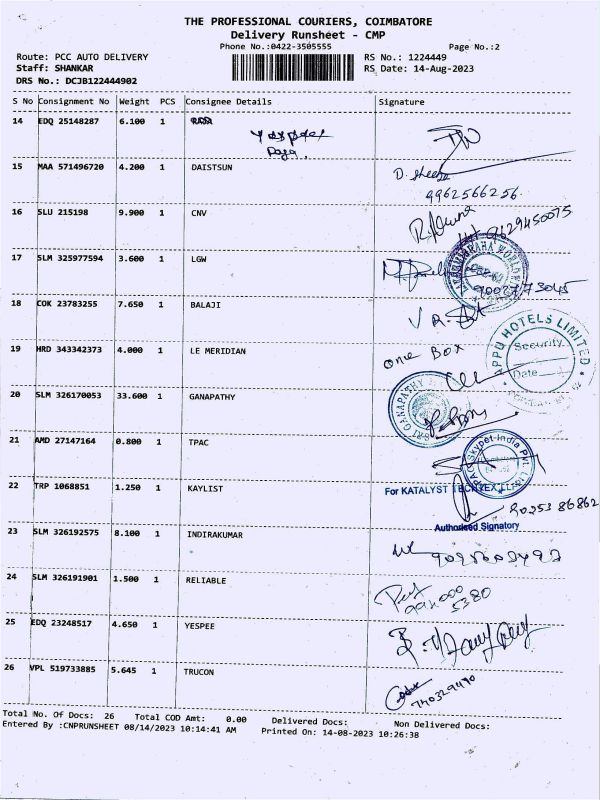 THE PROFESSIONAL COURIERS, COIMBATORE
Delivery Runsheet - CMP
Phone No.:0422-3505555 Page No.:2
Route: PCC AUTO DELIVERY RS No.: 1224449
Staff: SHANKAR RS Date: 14-Aug-2023
DRS No.: DCJB122444902
S No Consignment No Weight PCS Consignee Details Signature
14 EDQ 25148287 6.100 1
15 MAA 571496720 4.200 1 DAISTSUN D. Sheeja
9962566256
16 SLU 215198 9.900 1 CNV
9629450075
17 SLM 325977594 3.600 1 LGW
18 COK 23783255 7.650 1 BALAJI
19 HRD 343342373 4.000 1 LE MERIDIAN one Box
APPU HOTELS LIMITED
Security
Date
20 SLM 326170053 33.600 1 GANAPATHY
SRI GANAPATHY
21 AMD 27147164 0.800 1 TPAC
Skypet-India Pvt.
22 TRP 1068851 1.250 1 KAYLIST For KATALYST
Authorised Signatory
23 SLM 326192575 8.100 1 INDIRAKUMAR
24 SLM 326191901 1.500 1 RELIABLE
25 EDQ 23248517 4.650 1 YESPEE
26 VPL 519733885 5.645 1 TRUCON
Total No. Of Docs: 26 Total COD Amt: 0.00 Delivered Docs: Non Delivered Docs:
Entered By :CNPRUNSHEET 08/14/2023 10:14:41 AM Printed On: 14-08-2023 10:26:38